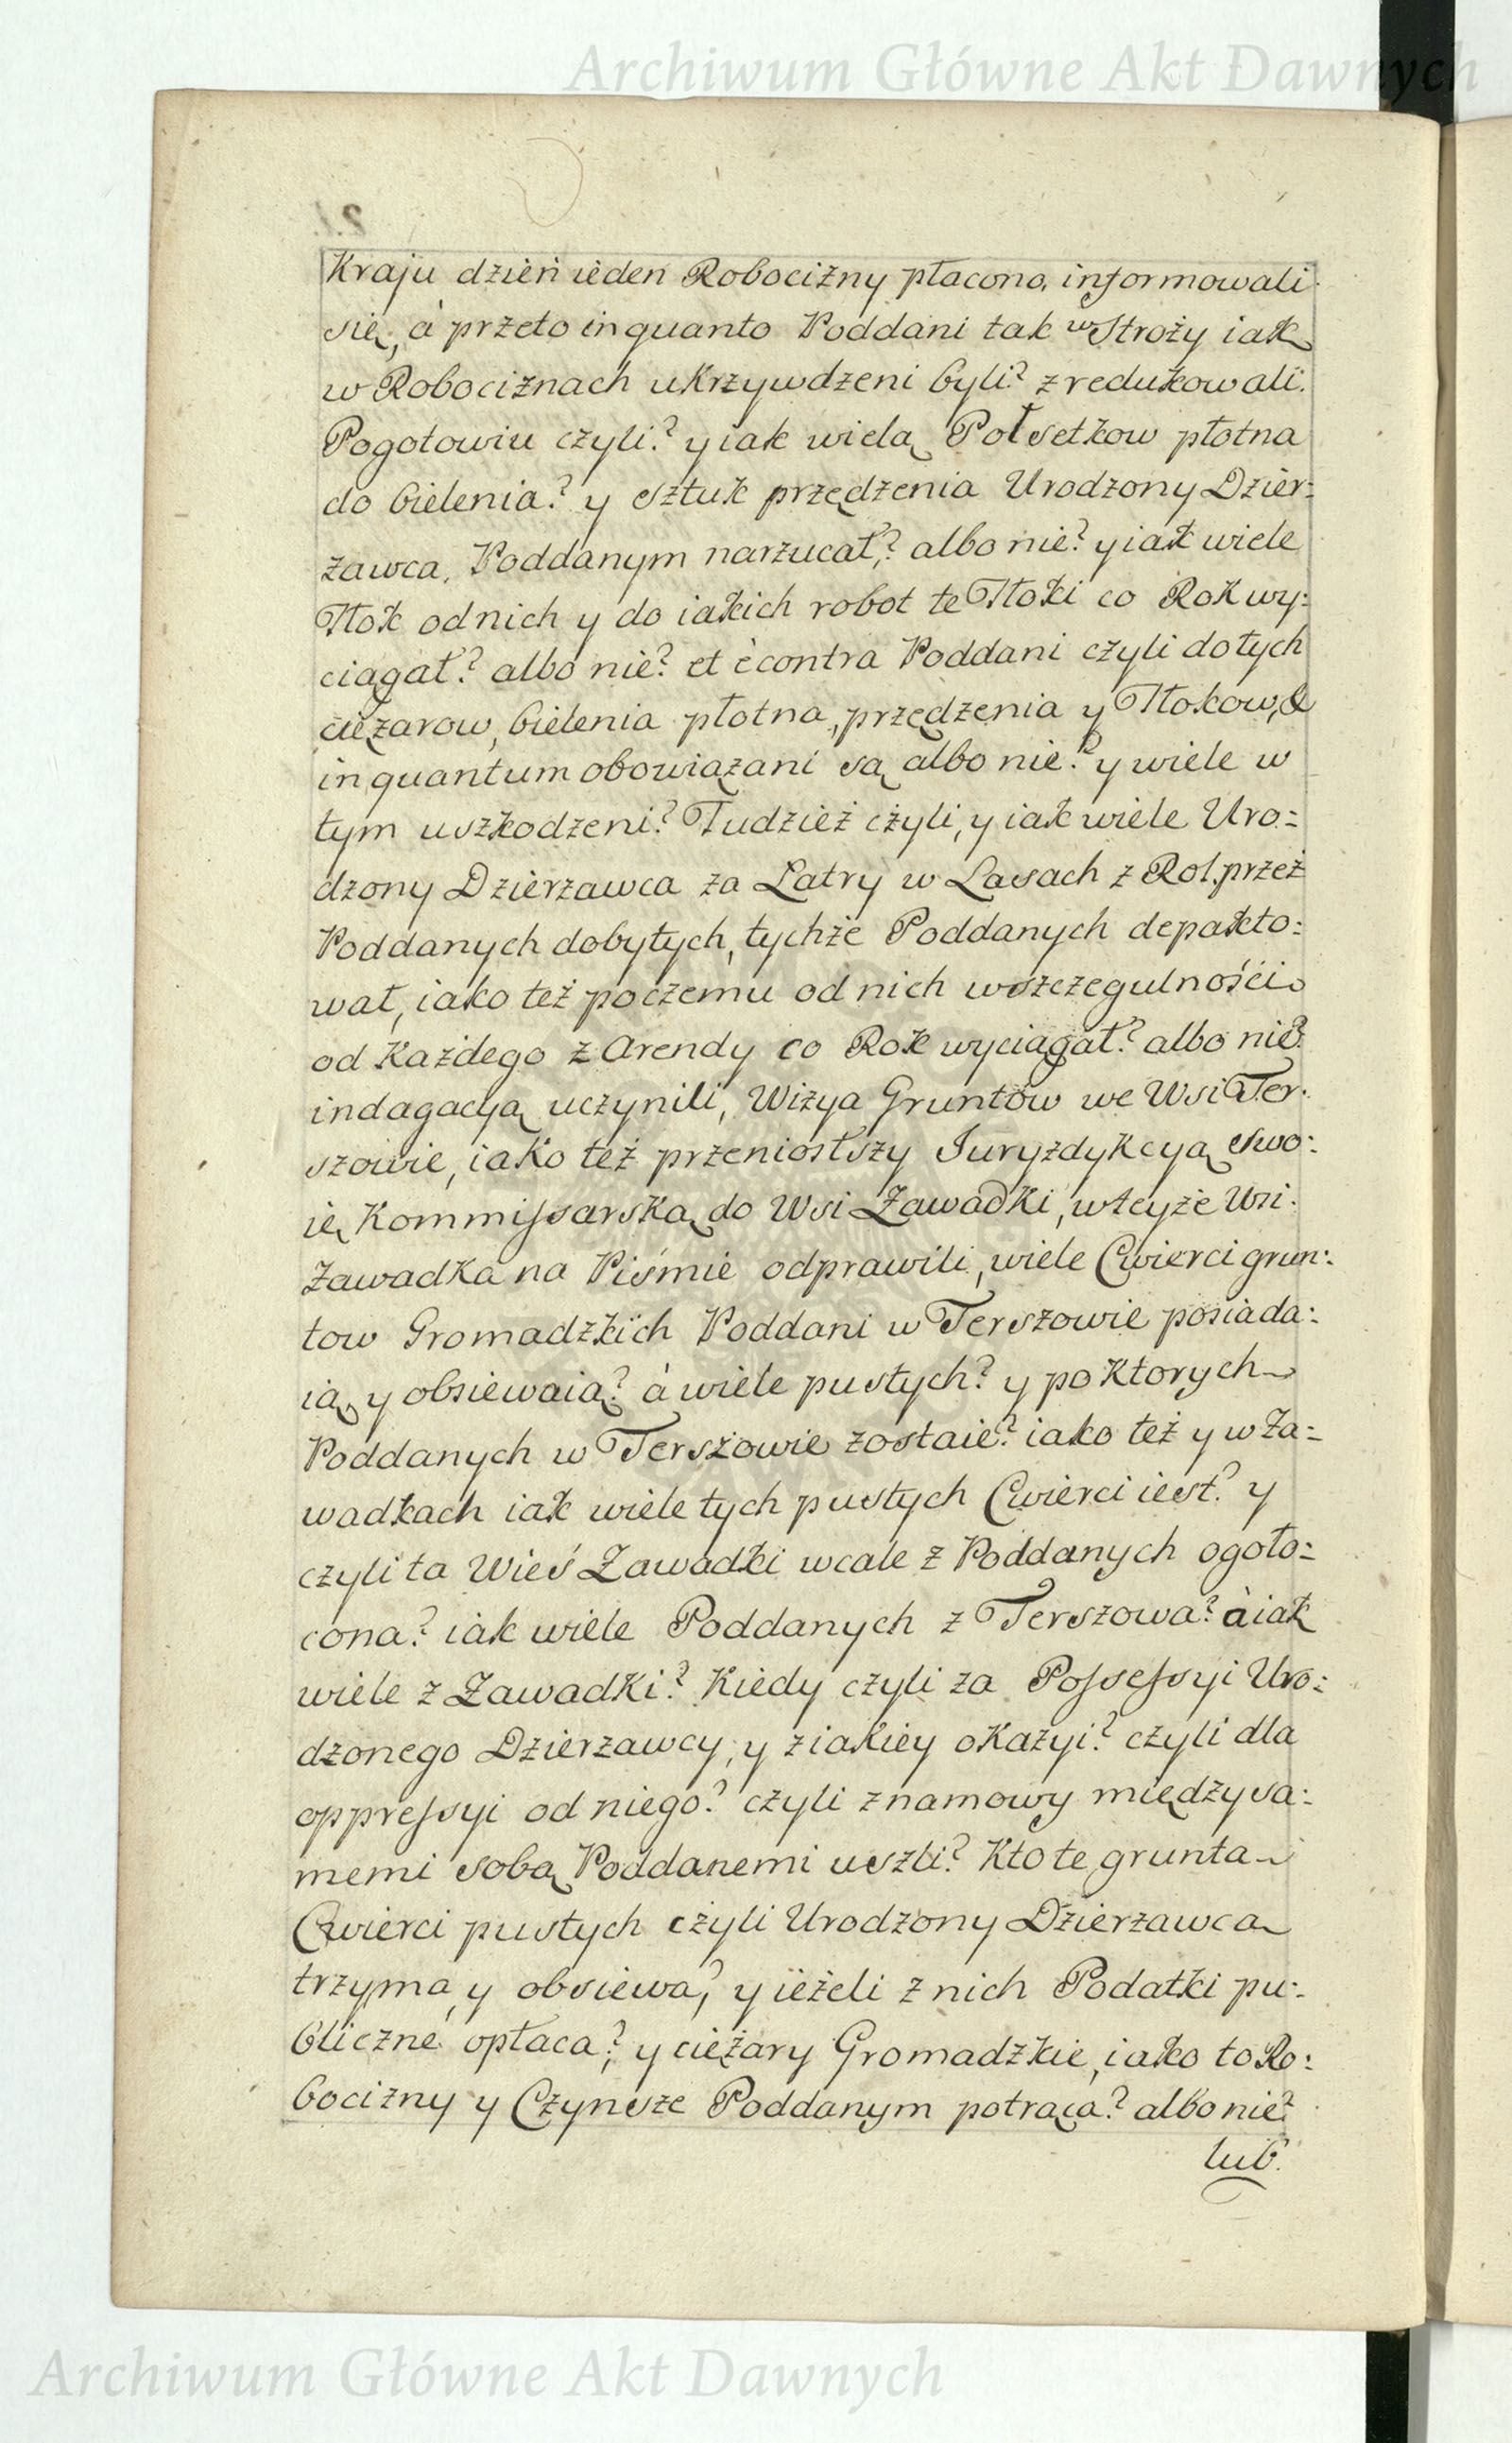 Archiwum Główne Akt Dawnych
Kraju dzień ieden Robocizny płacono, informowali
się, à przeto inquanto Poddani tak w Stroży iak
w Robociznach ukrzywdzeni byli? zredukowali.
Pogotowiu czyli? y iak wielą Połsetkow płotna
do bielenia? y sztuk przędzenia Urodzony Dzier:
zawca, Poddanym narzucał,? albo nie? y iak wiele
Tłok od nich y do iakich robot te Tłoki co Rok wy:
ciągał? albo nie? et è contra Poddani czyli do tych
ciężarow, bielenia płotna, przędzenia y Tłokow, &
inquantum obowiązani są albo nie? y wiele w
tym uszkodzeni? Tudzież czyli, y iak wiele Uro:
dzony Dzierzawca za Łatry w Lasach z Rol. przez
Poddanych dobytych, tychże Poddanych depakto:
wał, iako też poczemu od nich wszczegulności
od Każdego z Arendy co Rok wyciągał? albo nie?
indagacyą uczynili, Wizya Gruntow we Wsi Ter:
szowie, iako też przeniosłszy Juryzdykcyą swo:
ię Kommissarską do Wsi Zawadki, w teyże Wsi.
Zawadka na Piśmie odprawili, wiele Cwierci grun:
tow Gromadzkich Poddani w Terszowie posiada:
ią, y obsiewaią? à wiele pustych? y po Ktorych
Poddanych w Terszowie zostaie? iako też y w Za:
wadkach iak wiele tych pustych Cwierci iest? y
czyli ta Wieś Zawadki wcale z Poddanych ogoło:
cona? iak wiele Poddanych z Terszowa? à iak
wiele z Zawadki? Kiedy czyli za Possessyi Uro:
dzonego Dzierzawcy, y z iakiey okazyi? czyli dla
oppressyi od niego? czyli z namowy między sa:
memi sobą Poddanemi uszli? Kto te grunta
Cwierci pustych czyli Urodzony Dzierzawca
trzyma, y obsiewa? y ieżeli z nich Podatki pu:
bliczne opłaca? y ciężary Gromadzkie, iako to Ro:
bocizny y Czynsze Poddanym potrąca? albo nie?
lub.
Archiwum Główne Akt Dawnych